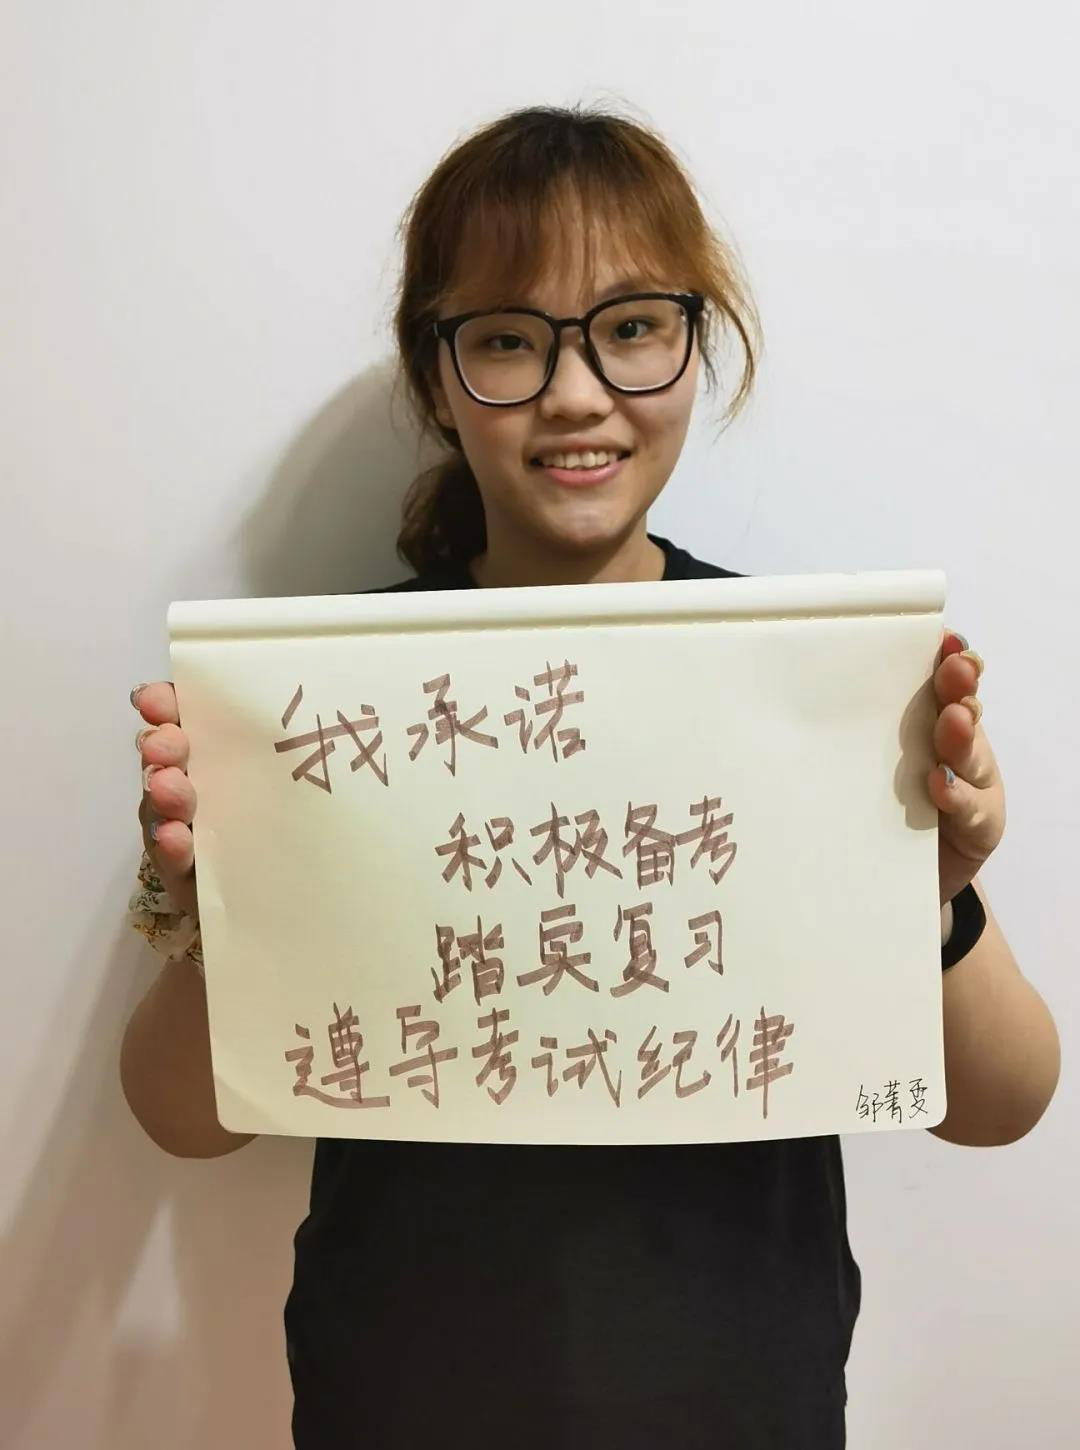 我承诺
积极备考
踏实复习
遵守考试纪律
邹菁雯